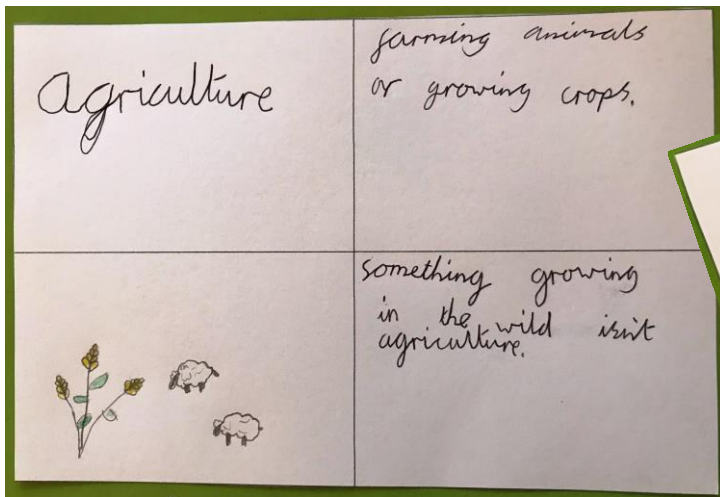 agriculture
farming animals
or growing crops.
something growing
in the wild isn't
agriculture.